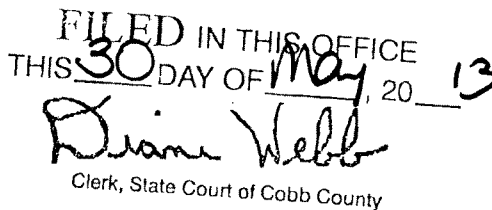 FILED IN THIS OFFICE
THIS 30 DAY OF May, 20 13
Diane Webb
Clerk, State Court of Cobb County